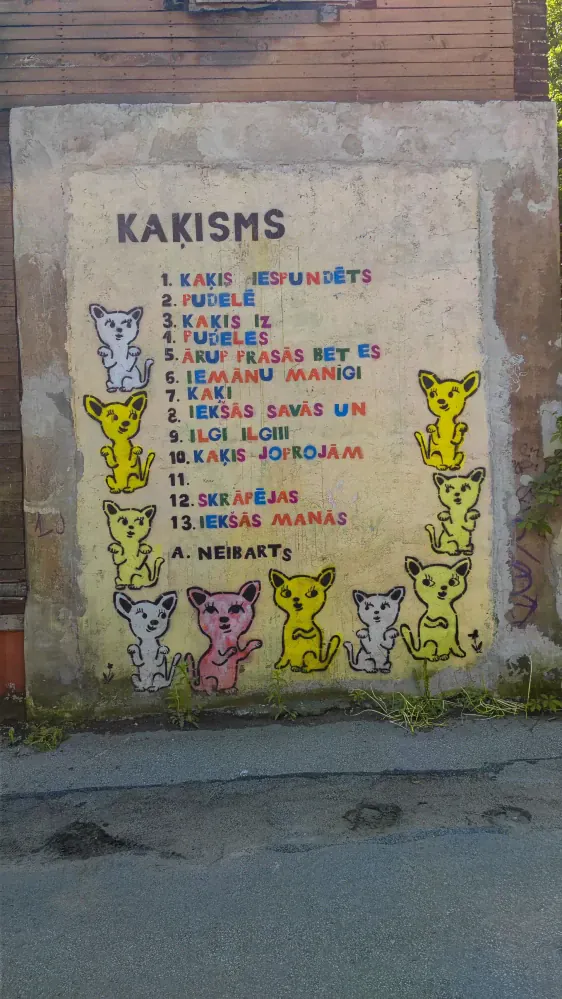 KAĶISMS
1. KAĶIS IESPUNDĒTS
2. PUDELĒ
3. KAĶIS IZ
4. PUDELES
5. ĀRUP PRASĀS BET ES
6. IEMĀNU MANIGI
7. KAĶI
8. IEKŠĀS SAVĀS UN
9. ILGI ILGIII
10. KAĶIS JOPROJĀM
11.
12. SKRĀPĒJAS
13. IEKŠĀS MANĀS
A. NEIBARTS